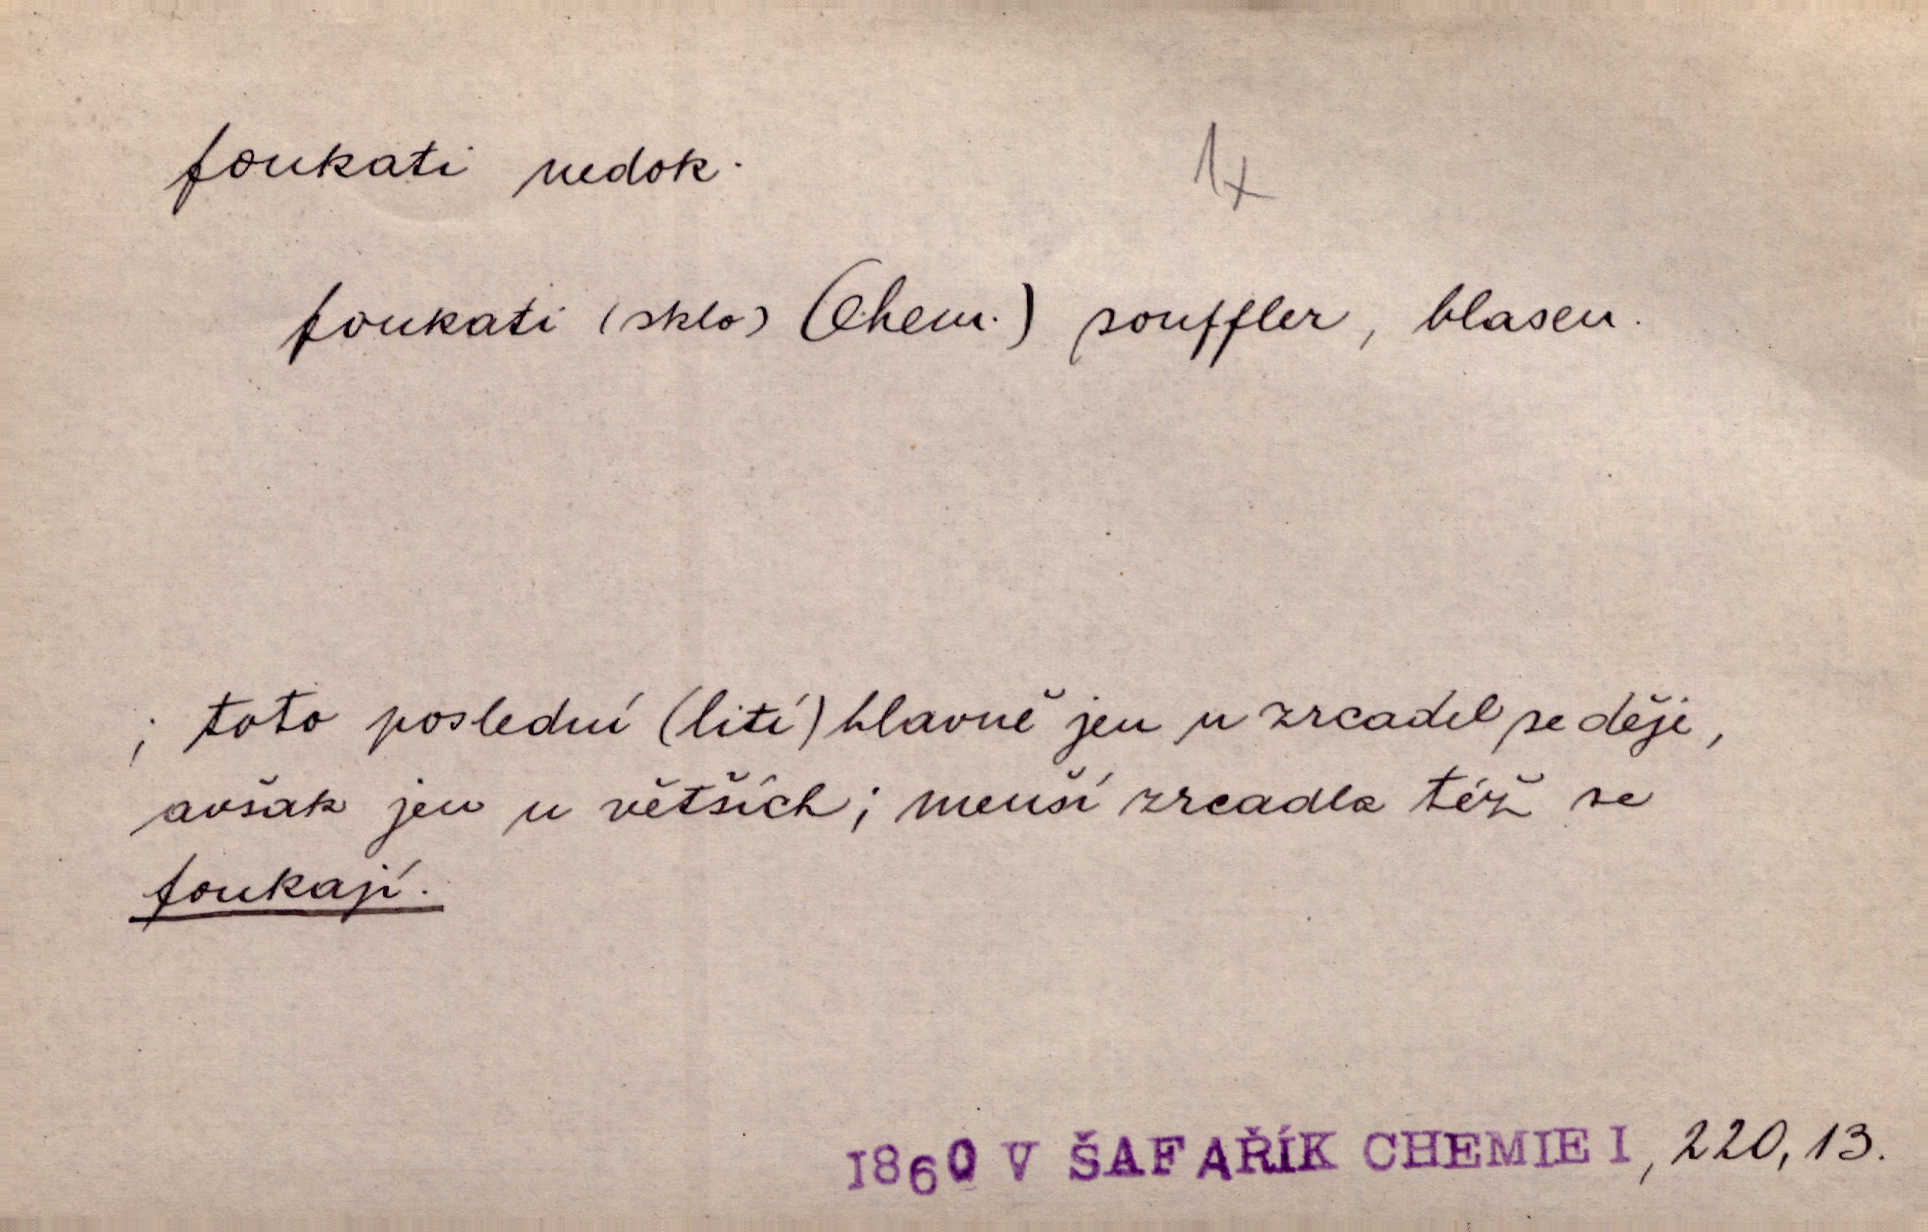 foukati nedok. 1x
foukati (sklo) (Chem.) souffler, blasen.
; toto poslední (lití) hlavně jen u zrcadel se děje,
avšak jen u větších; menší zrcadla též se
foukají.
1860 V ŠAFAŘÍK CHEMIE I, 220, 13.